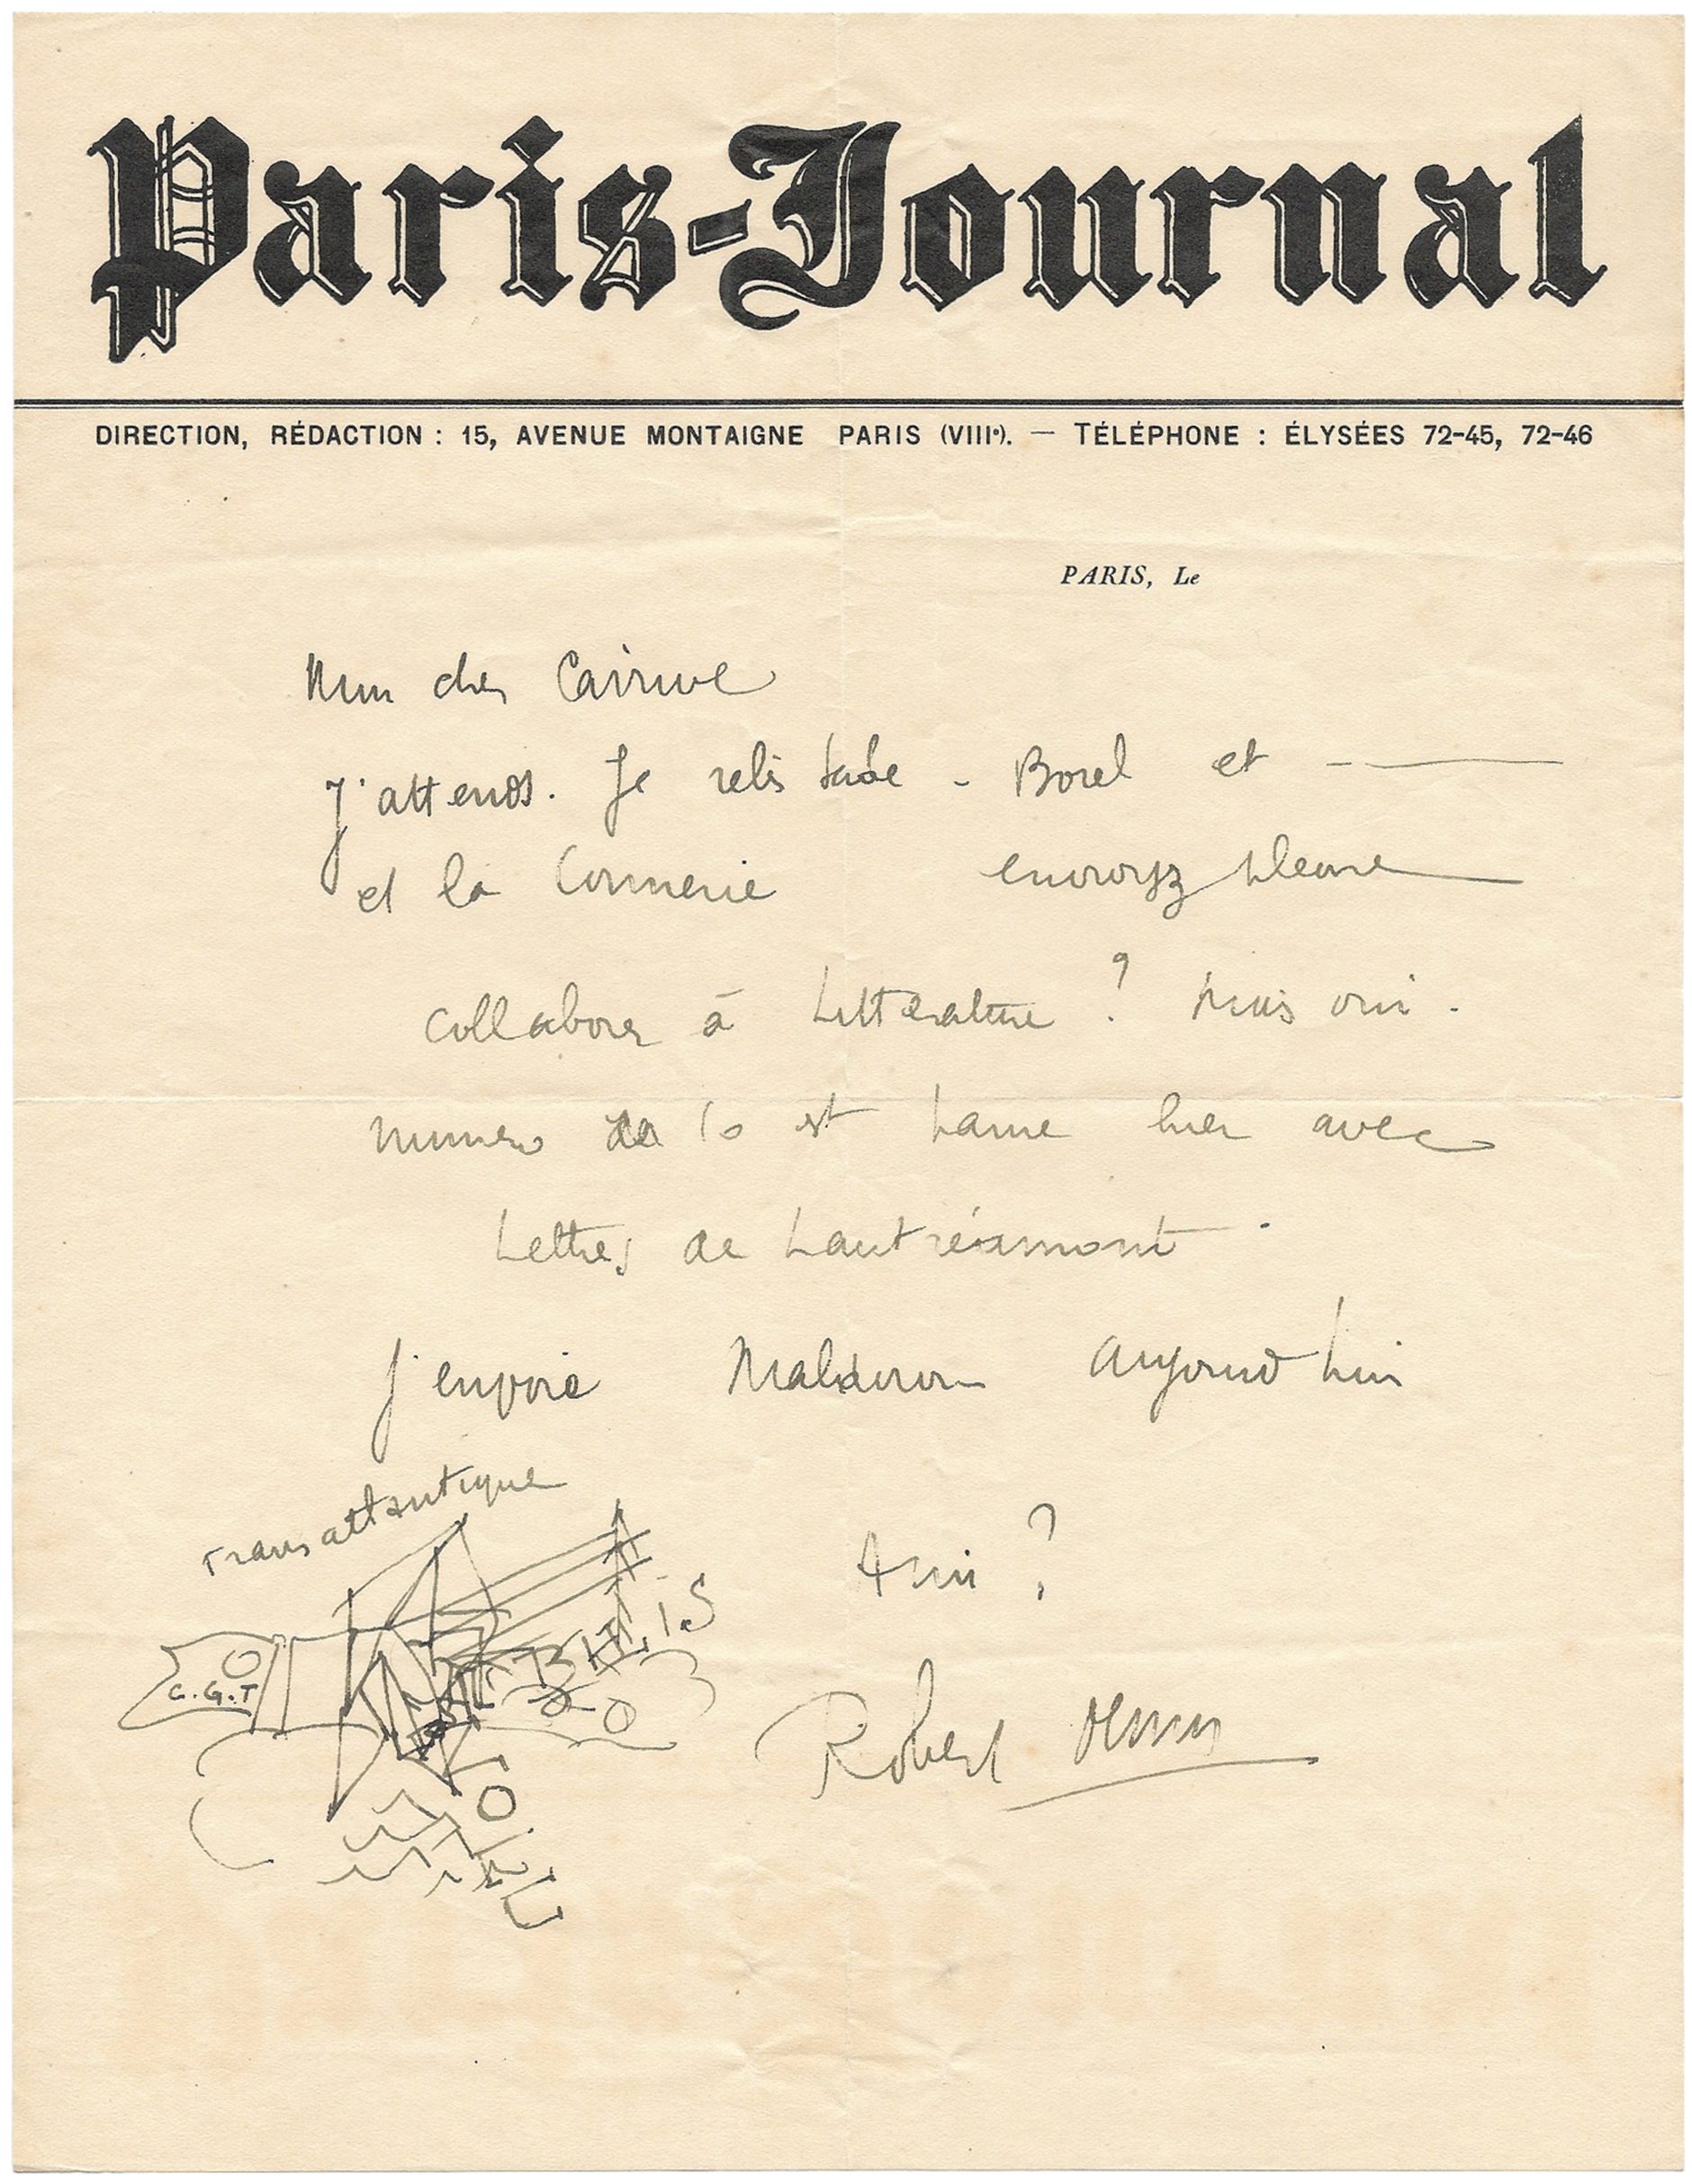 Paris-Journal
DIRECTION, RÉDACTION : 15, AVENUE MONTAIGNE PARIS (VIIIe). — TÉLÉPHONE : ÉLYSÉES 72-45, 72-46
PARIS, Le
Mon cher
J'attends. Je relis Sade - Borel et
et la Connerie envoyez
Collaborer à Littérature ? Mais oui.
numero de 10 est parue hier avec
Lettres de Lautréamont
J'envoie Maldoror aujourd'hui
Transatlantique
Ami ?
C.G.T
Robert Desnos